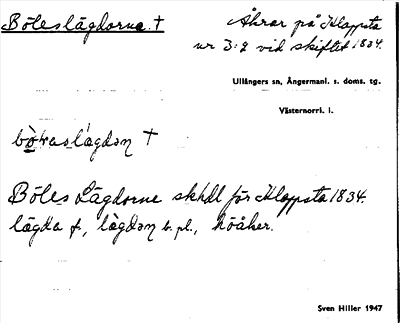 Böleslägdorne. †
Åkrar på Klappsta
nr 3:2 vid skiftet 1834.
Ullångers sn, Ångermanl. s. doms. tg.
Västernorrl. l.
†
Böles Lägdorne skhdl för Klappsta 1834.
lägda f., lägdən b. pl., höåker.
Sven Hiller 1947